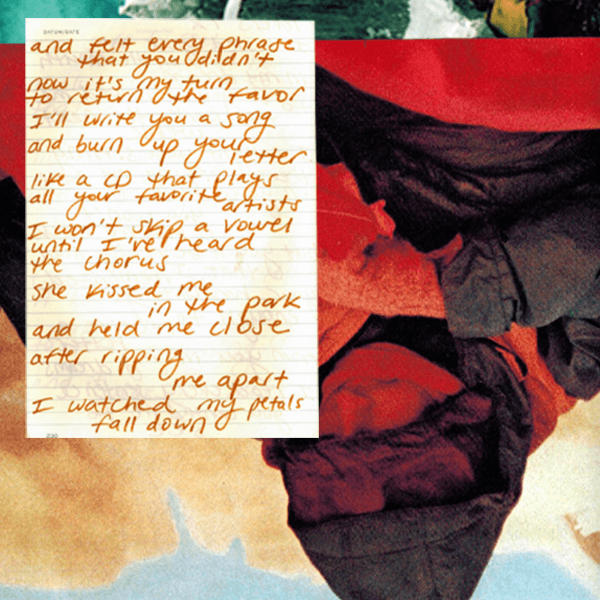 DATUM/DATE
and felt every phrase
that you didn't
now it's my turn
to return the favor
I'll write you a song
and burn up your
letter
like a CD that plays
all your favorite
artists
I won't skip a vowel
until I've heard
the chorus
she kissed me
in the park
and held me close
after ripping
me apart
I watched my petals
fall down
230